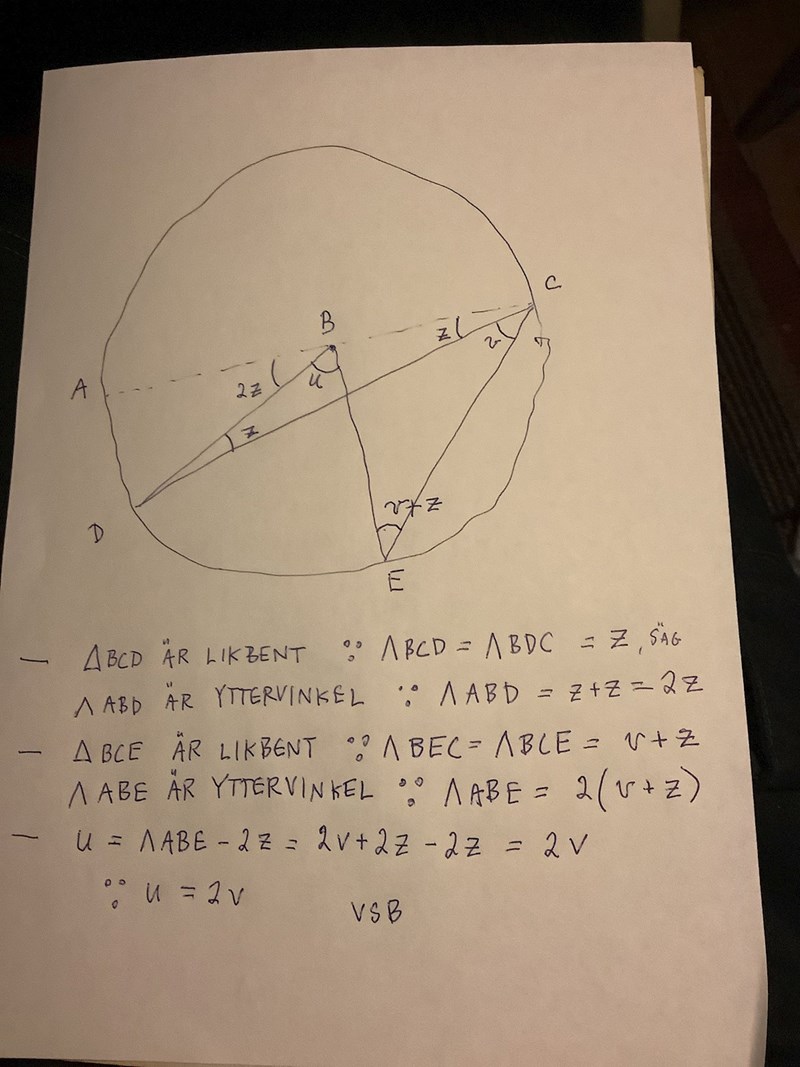 C
B
A
z
v
2z
u
z
D
v+z
E
— ΔBCD ÄR LIKBENT ∵ ΛBCD = ΛBDC = z, SÄG
ΛABD ÄR YTTERVINKEL ∵ ΛABD = z+z = 2z
— ΔBCE ÄR LIKBENT ∵ ΛBEC = ΛBCE = v+z
ΛABE ÄR YTTERVINKEL ∵ ΛABE = 2(v+z)
— u = ΛABE - 2z = 2v+2z - 2z = 2v
∵ u = 2v
VSB